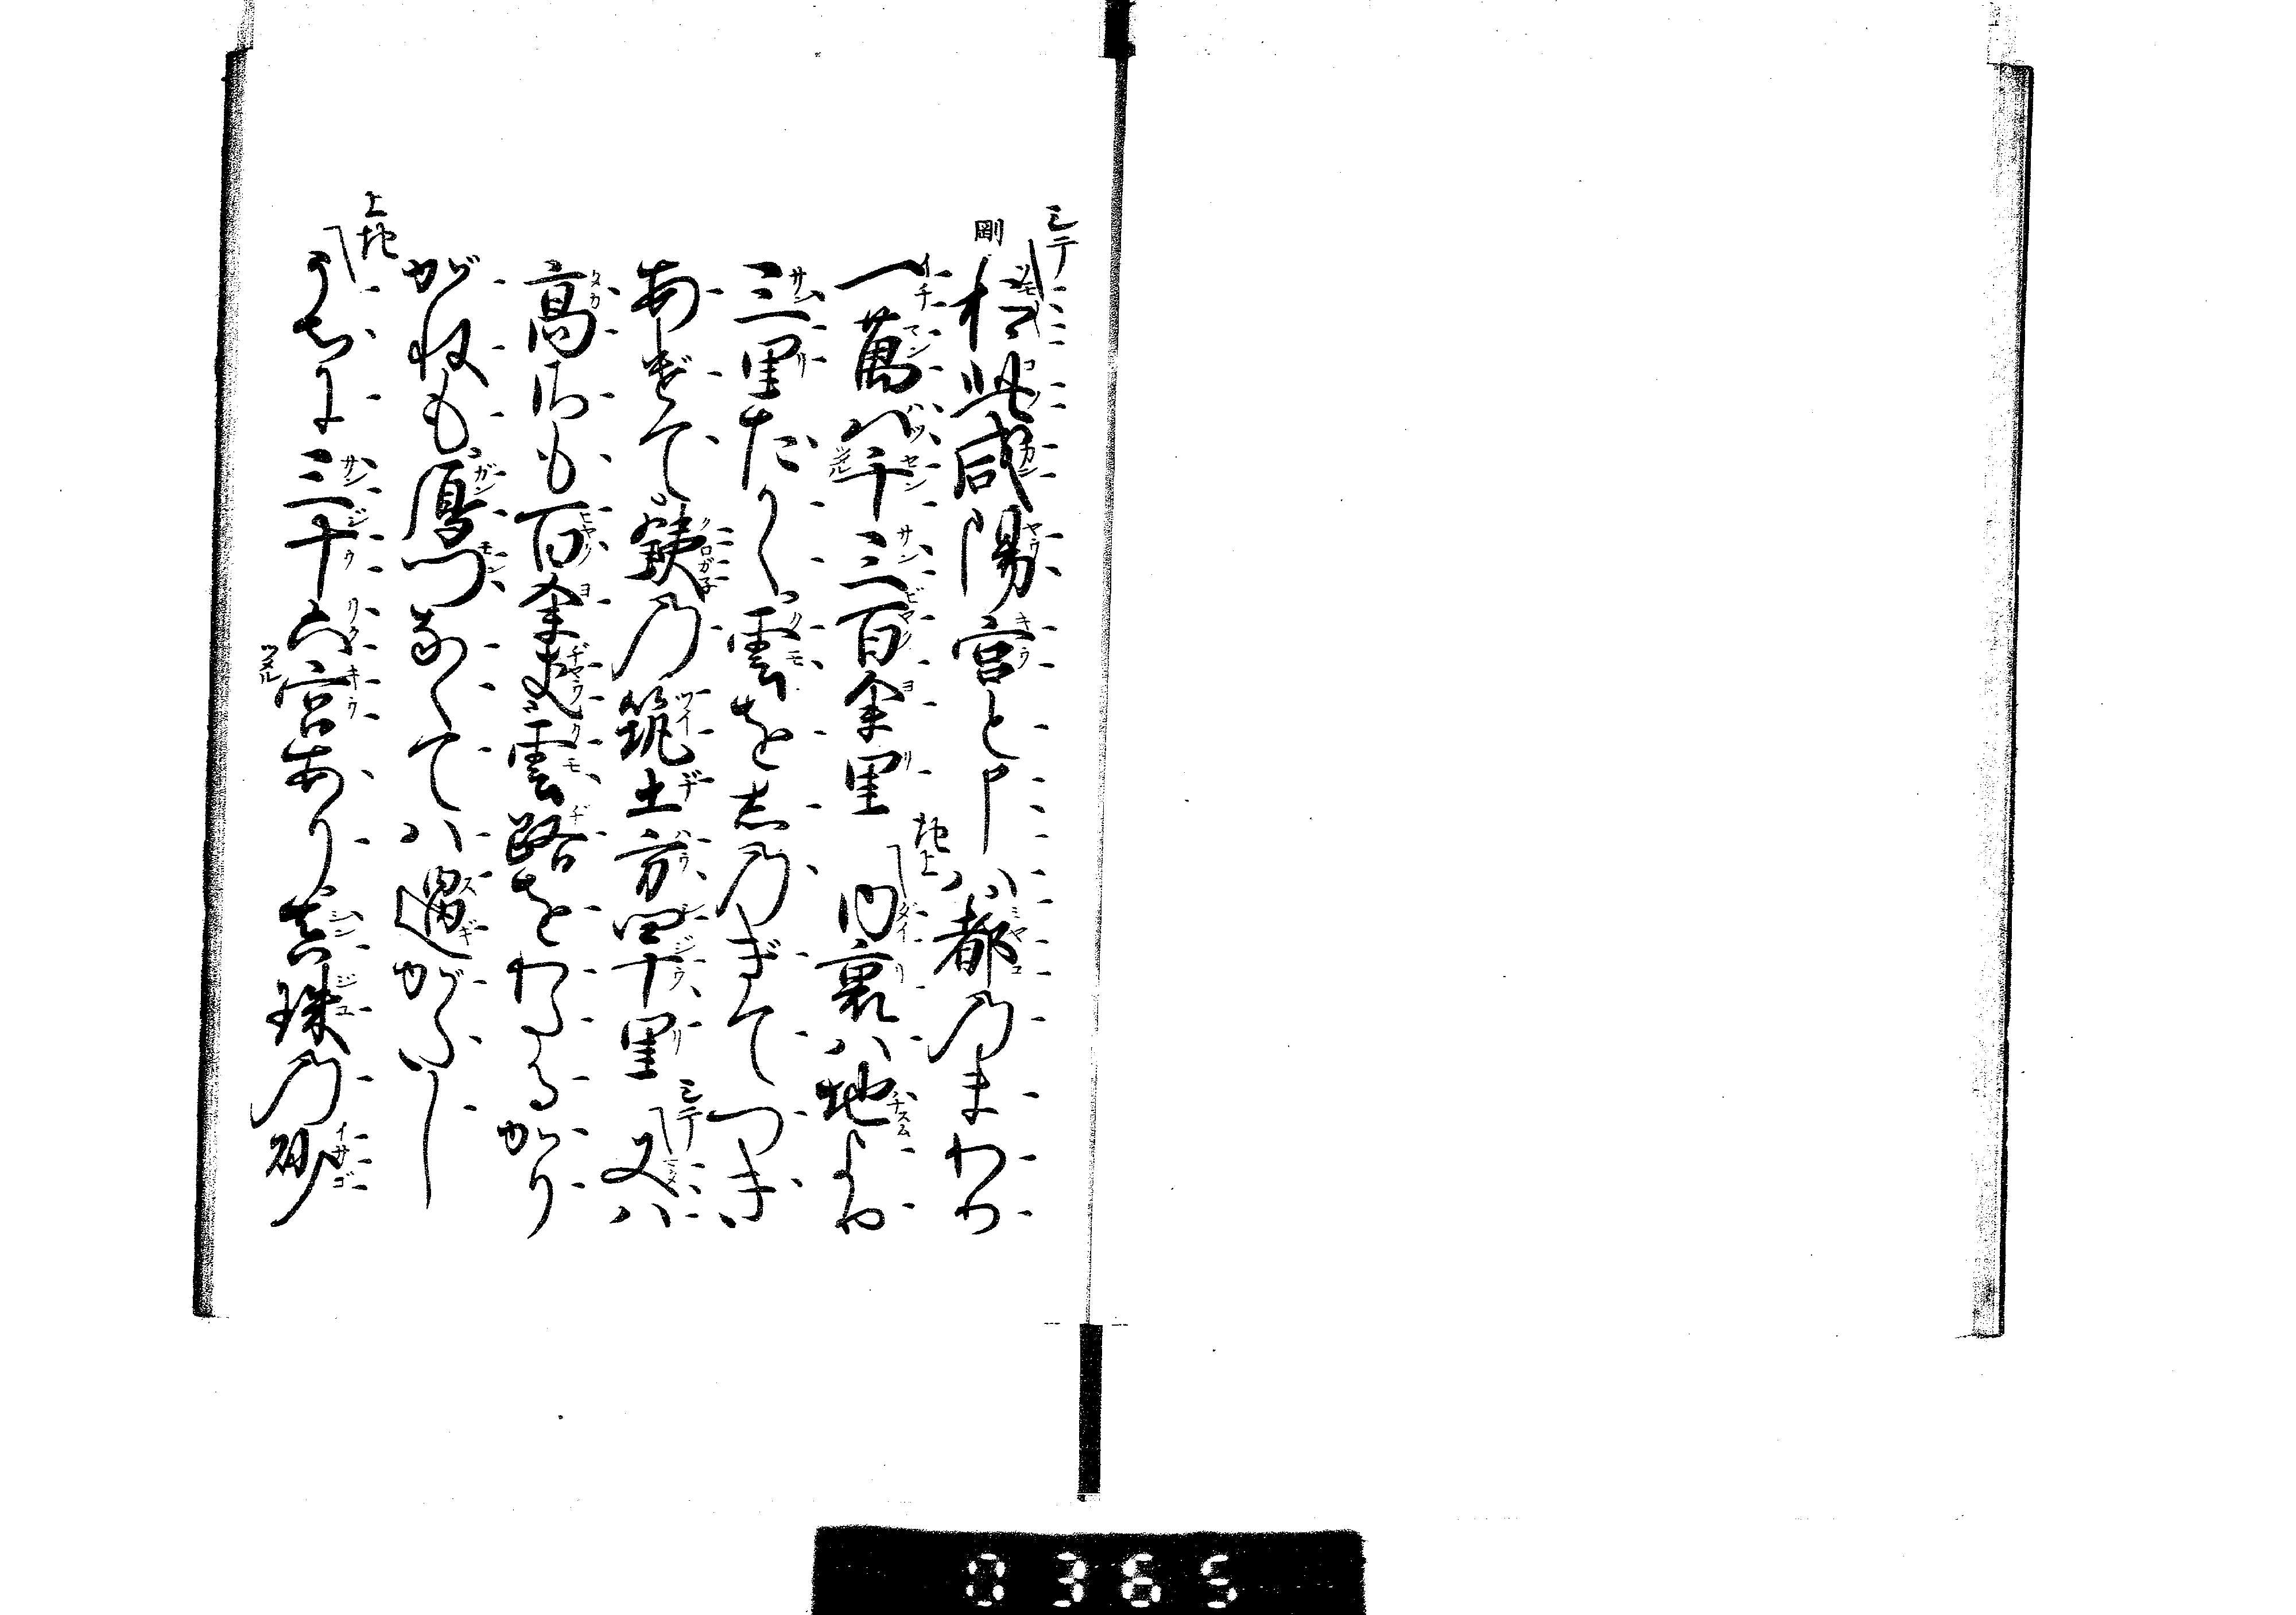 シテ
剛 抑此咸陽宮と申ハ都乃まわり
一萬八千三百余里 地上 内裏ハ地より
三里たかく雲を志乃ぎてつき
あげて鉄乃築土方四十里 シテ 又ハ
高さも百余丈雲路をわたるかり
がねも鴈門なくてハ過がたし
上地 うちに三十六宮あり真珠乃砂
0365